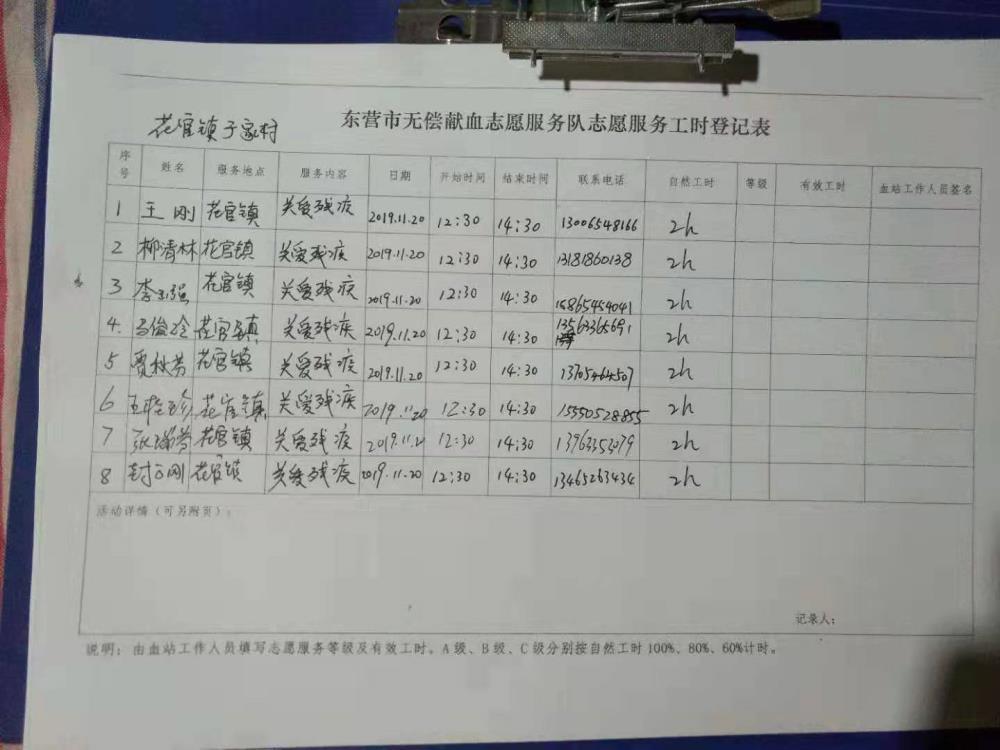 东营市无偿献血志愿服务队志愿服务工时登记表
花官镇于家村
序号 姓名 服务地点 服务内容 日期 开始时间 结束时间 联系电话 自然工时 等级 有效工时 血站工作人员签名
1 王刚 花官镇 关爱残疾 2019.11.20 12:30 14:30 13006548166 2h
2 柳清林 花官镇 关爱残疾 2019.11.20 12:30 14:30 13181860138 2h
3 花官镇 关爱残疾 2019.11.20 12:30 14:30 15865454041 2h
4. 马俊玲 花官镇 关爱残疾 2019.11.20 12:30 14:30 13563365691 2h
5 贾秋芳 花官镇 关爱残疾 2019.11.20 12:30 14:30 13705464507 2h
6 花官镇 关爱残疾 2019.11.20 12:30 14:30 15550528855 2h
7 张瑞芳 花官镇 关爱残疾 2019.11.2 12:30 14:30 13963353079 2h
8 花官镇 关爱残疾 2019.11.20 12:30 14:30 13465263434 2h
活动详情（可另附页）：
记录人：
说明：由血站工作人员填写志愿服务等级及有效工时。A级、B级、C级分别按自然工时100%、80%、60%计时。